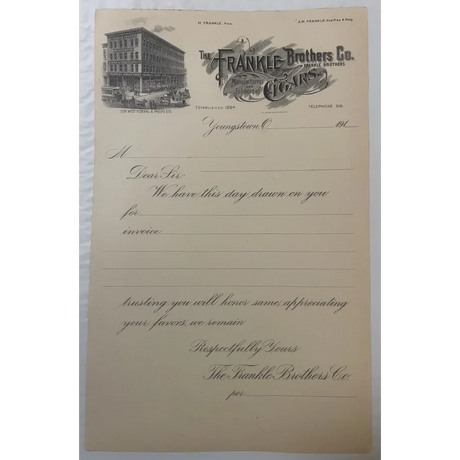 H. FRANKLE, Pres. A.M. FRANKLE, Vice Pres. & Secy.
THE FRANKLE Brothers Co.
FRANKLE BROTHERS
CIGARS
COR. WEST FEDERAL & PHELPS STS.
ESTABLISHED 1884 TELEPHONE 316.
Youngstown, O. 191
M
Dear Sir
We have this day drawn on you
for
invoice
trusting you will honor same, appreciating
your favors, we remain
Respectfully Yours
The Frankle Brothers Co.
per